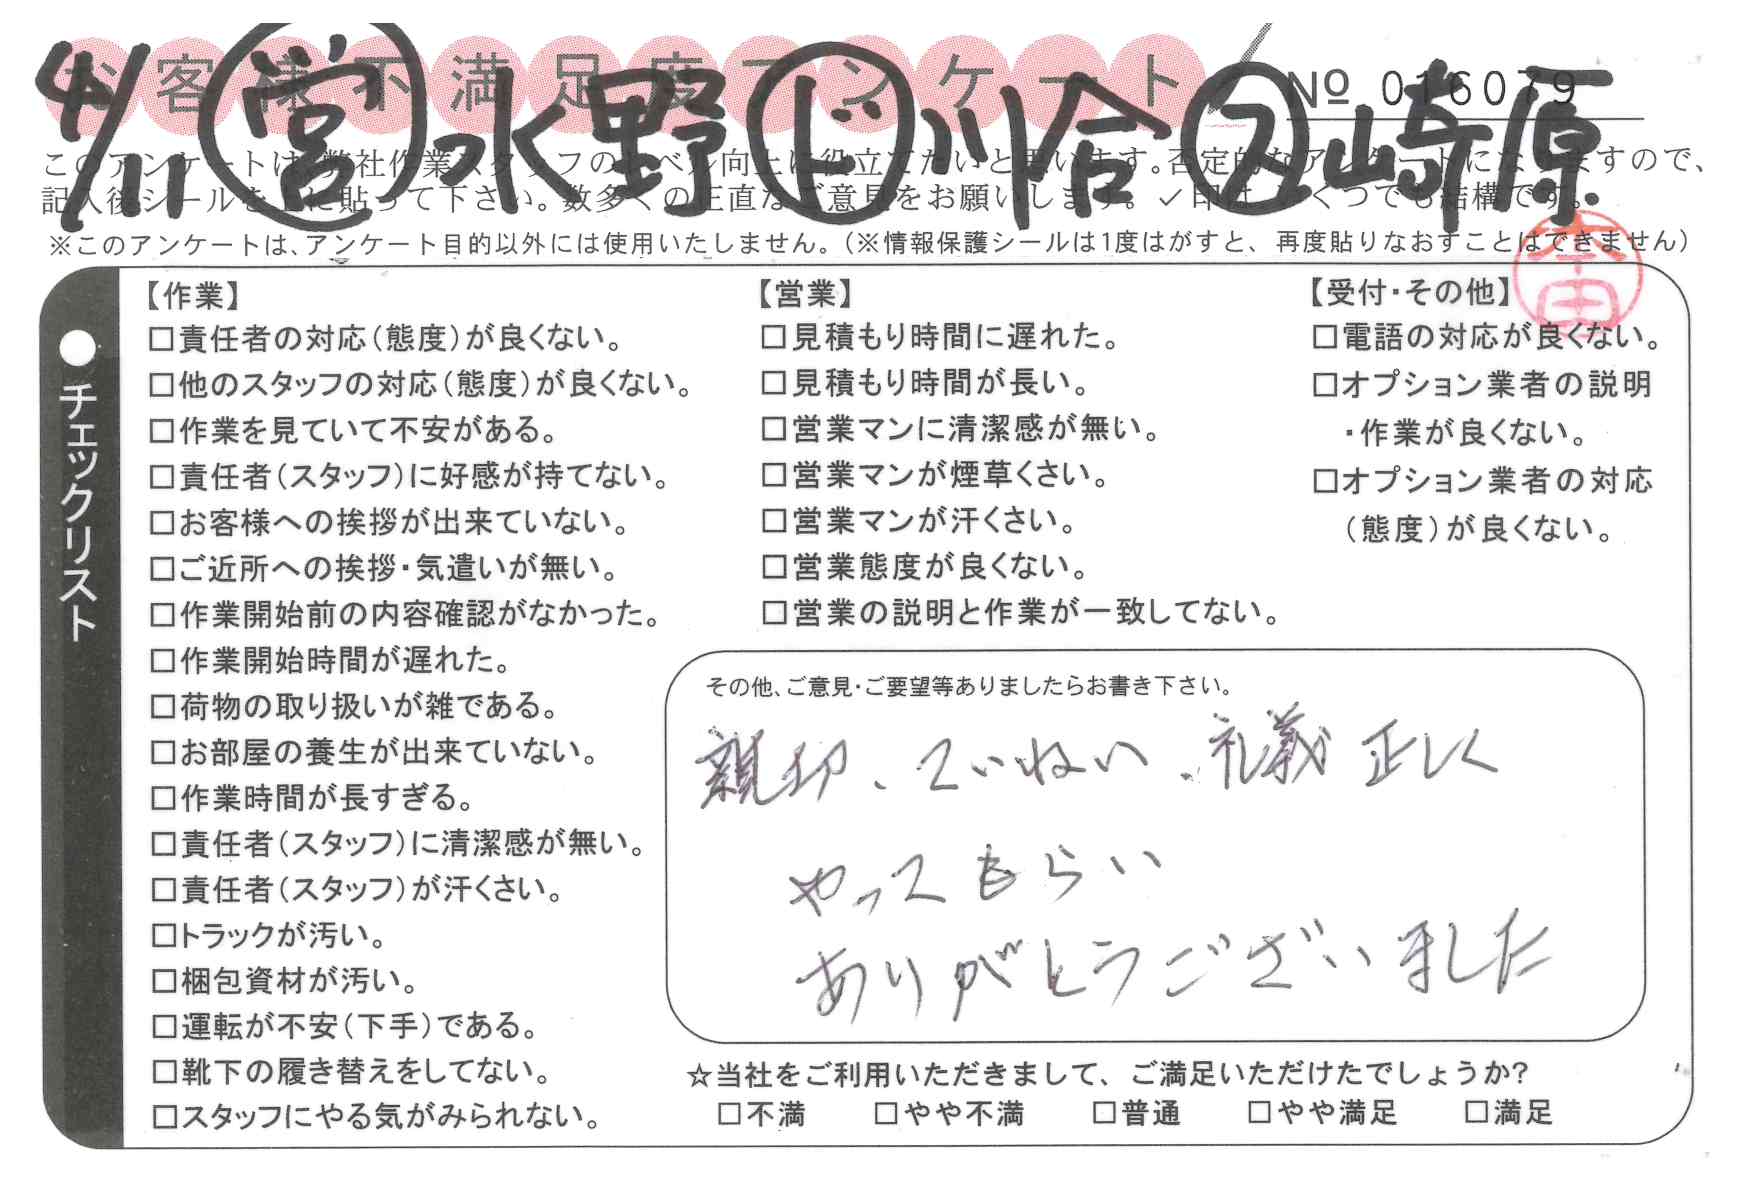 お客様不満足度アンケート
4/11 営 水野 ド 川合 ス 崎原
№ 016079
このアンケートは、弊社作業スタッフのレベル向上に役立てたいと思います。否定的なアンケートになりますので、
記入後シールを上に貼って下さい。数多くの正直なご意見をお願いします。✓印は、いくつでも結構です。
※このアンケートは、アンケート目的以外には使用いたしません。（※情報保護シールは1度はがすと、再度貼りなおすことはできません）
本田
●チェックリスト
【作業】
□責任者の対応（態度）が良くない。
□他のスタッフの対応（態度）が良くない。
□作業を見ていて不安がある。
□責任者（スタッフ）に好感が持てない。
□お客様への挨拶が出来ていない。
□ご近所への挨拶・気遣いが無い。
□作業開始前の内容確認がなかった。
□作業開始時間が遅れた。
□荷物の取り扱いが雑である。
□お部屋の養生が出来ていない。
□作業時間が長すぎる。
□責任者（スタッフ）に清潔感が無い。
□責任者（スタッフ）が汗くさい。
□トラックが汚い。
□梱包資材が汚い。
□運転が不安（下手）である。
□靴下の履き替えをしてない。
□スタッフにやる気がみられない。
【営業】
□見積もり時間に遅れた。
□見積もり時間が長い。
□営業マンに清潔感が無い。
□営業マンが煙草くさい。
□営業マンが汗くさい。
□営業態度が良くない。
□営業の説明と作業が一致してない。
【受付・その他】
□電話の対応が良くない。
□オプション業者の説明
・作業が良くない。
□オプション業者の対応
（態度）が良くない。
その他、ご意見・ご要望等ありましたらお書き下さい。
親切、ていねい、礼義正しく
やってもらい
ありがとうございました
☆当社をご利用いただきまして、ご満足いただけたでしょうか？
□不満 □やや不満 □普通 □やや満足 □満足